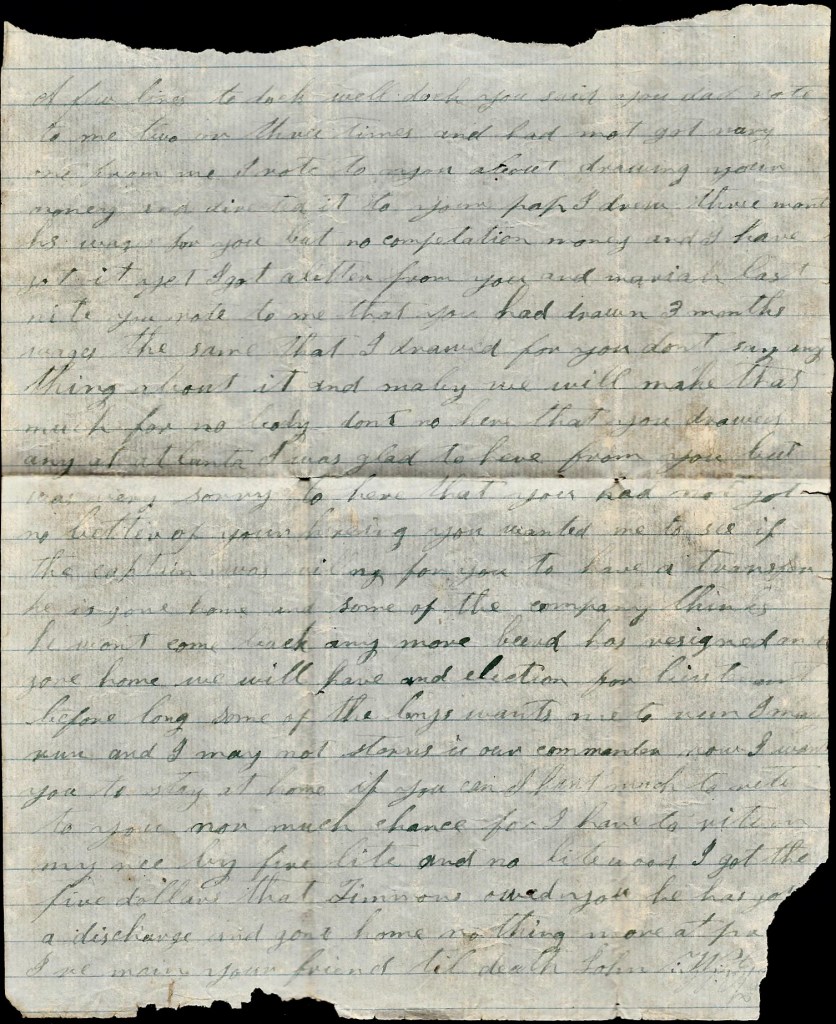 A few lines to dock well dock you said you dad rote
to me two or three times and had not got nary
one from me I rote to you about drawing your
money and directed it to your pap I drew three mont
hs wages for you but no compelation money and I have
got it yet I got a letter from you and mariah last
nite you rote to me that you had drawn 3 months
wages the same that I drawed for you dont say any
thing about it and maby we will make that
much for no body dont no here that you drawed
any at atlanta I was glad to here from you but
was very sorry to here that you had not got
no better of your you wanted me to see if
the captin was wiling for you to have a transfer
he is gone home and some of the company thinks
he wont come back any more beard has resigned an
gone home we will have and election for lieutenant
before long some of the boys wants me to run I may
run and I may not storris is our commander now I want
you to stay at home if you can I hant much to rite
to you nor much chance for I have to rite on
my nee by fire lite and no litewood I got the
five dollars that Timmons owed you he has got
a discharge and gone home nothing more at pr
I re main your friend til death John